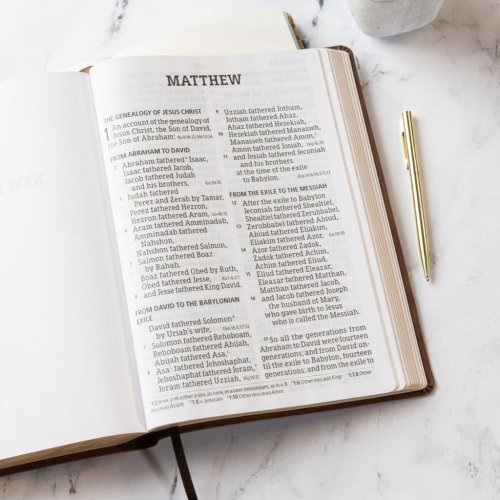 MATTHEW
THE GENEALOGY OF JESUS CHRIST
1 An account of the genealogy of
Jesus Christ, the Son of David,
the Son of Abraham:
FROM ABRAHAM TO DAVID
2 Abraham fathered* Isaac,
Isaac fathered Jacob,
Jacob fathered Judah
and his brothers,
3 Judah fathered
Perez and Zerah by Tamar,
Perez fathered Hezron,
Hezron fathered Aram,
4 Aram fathered Amminadab,
Amminadab fathered
Nahshon,
Nahshon fathered Salmon,
5 Salmon fathered Boaz
by Rahab,
Boaz fathered Obed by Ruth,
Obed fathered Jesse,
6 and Jesse fathered King David.
FROM DAVID TO THE BABYLONIAN
EXILE
David fathered Solomon
by Uriah's wife,
7 Solomon fathered Rehoboam,
Rehoboam fathered Abijah,
Abijah fathered Asa,
8 Asa fathered Jehoshaphat,
Jehoshaphat fathered Joram,
Joram fathered Uzziah,
9 Uzziah fathered Jotham,
Jotham fathered Ahaz,
Ahaz fathered Hezekiah,
10 Hezekiah fathered Manasseh,
Manasseh fathered Amon,
Amon fathered Josiah,
11 and Josiah fathered Jeconiah
and his brothers
at the time of the exile
to Babylon.
FROM THE EXILE TO THE MESSIAH
12 After the exile to Babylon
Jeconiah fathered Shealtiel,
Shealtiel fathered Zerubbabel,
13 Zerubbabel fathered Abiud,
Abiud fathered Eliakim,
Eliakim fathered Azor,
14 Azor fathered Zadok,
Zadok fathered Achim,
Achim fathered Eliud,
15 Eliud fathered Eleazar,
Eleazar fathered Matthan,
Matthan fathered Jacob,
16 and Jacob fathered Joseph
the husband of Mary,
who gave birth to Jesus
who is called the Messiah.
17 So all the generations from
Abraham to David were fourteen
generations; and from David un-
til the exile to Babylon, fourteen
generations; and from the exile to